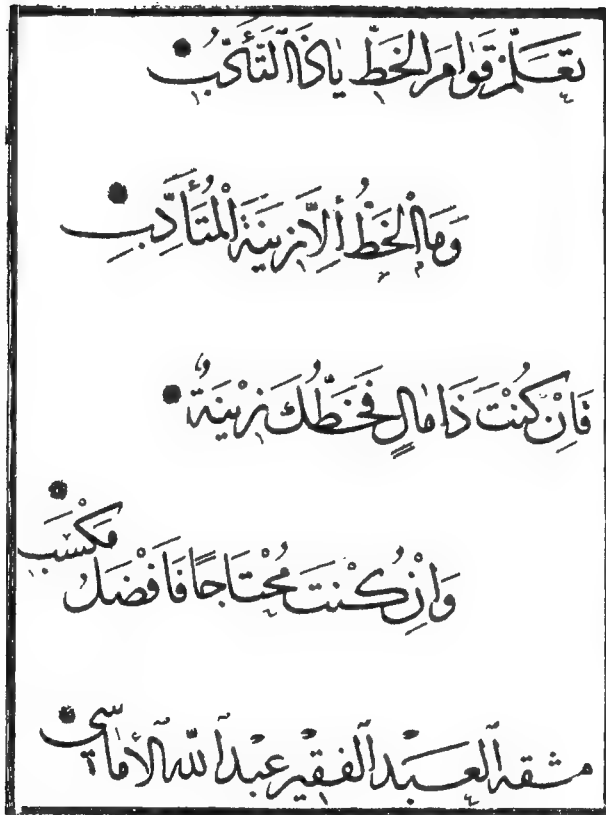 تَعَلَّمْ قَوَامَ الْخَطِّ يَا ذَا التَّأَدُّبِ
وَمَا الْخَطُّ إِلَّا زِينَةُ الْمُتَأَدِّبِ
فَإِنْ كُنْتَ ذَا مَالٍ فَخَطُّكَ زِينَةٌ
وَإِنْ كُنْتَ مُحْتَاجًا فَأَفْضَلُ مَكْسَبِ
مشقه العبد الفقير عبد الله الأماسي